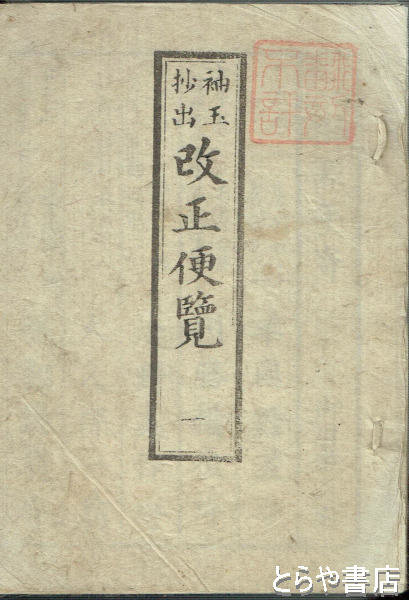 袖玉
抄出
改正便覽
一
とらや書店